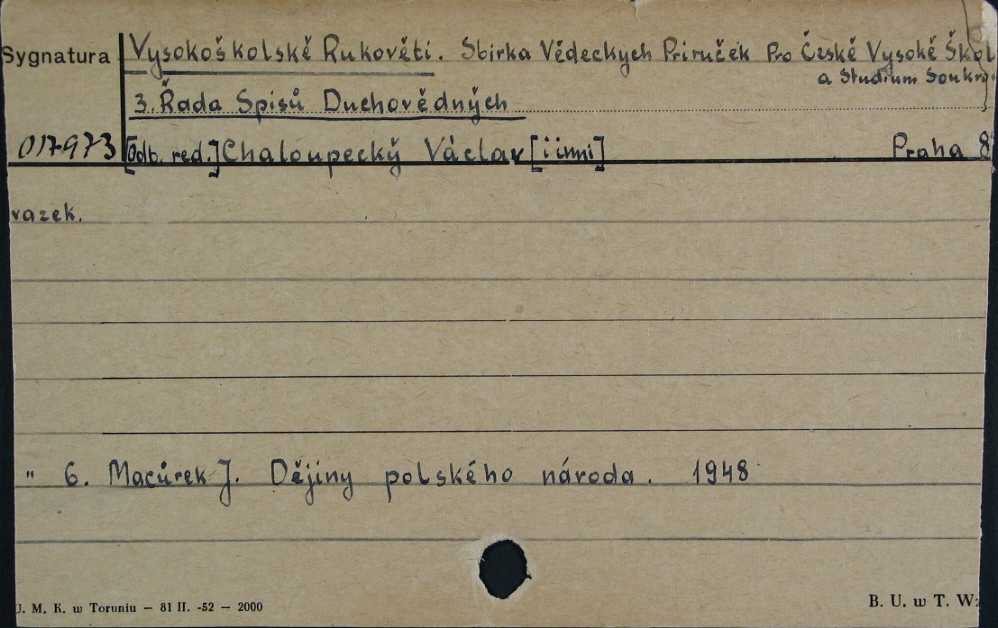 Sygnatura Vysokoškolské Rukovĕti. Sbirka Vĕdeckych Priruček Pro České Vysoké Škol
a Studium Soukro
3. Řada Spisů Duchovĕdných
017973 [Odb. red.] Chaloupecký Václav [i inni] Praha 8
wazek.
" 6. Macůrek J. Dĕjiny polského národa. 1948
U. M. K. w Toruniu — 81 II. -52 — 2000 B. U. w T. W: